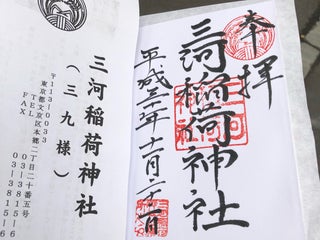 奉拝
三河稲荷神社
平成三十年十一月二十一日
三河稲荷神社
(三九様)
〒113-0033
東京都文京区本郷二丁目二十番五号
TEL 03-3815-6
FAX 03-3815-6